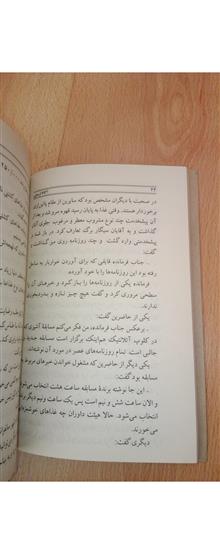 ۲۴
در صحبت با دیگران مشخص بود که سایرین از مقام والاتری
برخوردار هستند. وقتی غذا به پایان رسید قهوه صرف شد و بعد از
آن پیشخدمت چند نوع مشروب معطر و مرغوب جلوی آنان
گذاشت و به آقایان سیگار برگ تعارف کرد. در این موقع
پیشخدمتی وارد گشت و چند روزنامه روی میز گذاشت و
گفت:
ـ جناب فرمانده قایقی که برای آوردن خواربار به ساحل
رفته بود این روزنامه‌ها را با خود آورده.
فرمانده یکی از روزنامه‌ها را باز کرد و خبرهای آن را
سطحی مروری کرد و گفت هیچ چیز تازه و بدردبخوری
ندارند.
یکی از حاضرین گفت:
ـ برعکس جناب فرمانده، من فکر می‌کنم مسابقهٔ آشپزی که
در کلوپ آتلانتیک هم‌اینک برگزار است مسابقهٔ جدید و
جالبی است. تمام روزنامه‌های عصر در مورد آن نوشته‌اند.
یکی دیگر از حاضرین که مشغول خواندن خبرهای مربوط به
مسابقه بود گفت:
ـ این جا نوشته برندهٔ مسابقه ساعت هشت انتخاب می‌شود
و الان ساعت شش و نیم است پس یک ساعت و نیم دیگر برنده
انتخاب می‌شود. حالا هیئت داوران چه غذاهای خوشمزه‌ای
می‌خورند.
دیگری گفت: